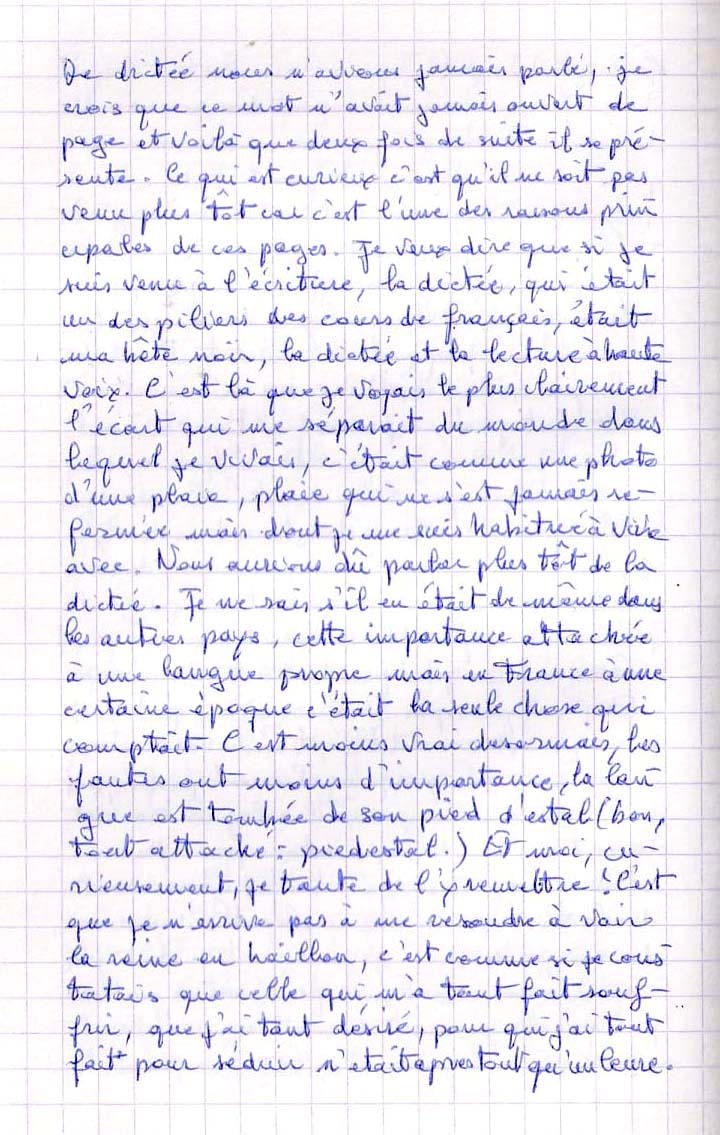 De dictée nous n'avions jamais parlé, je
crois que ce mot n'avait jamais ouvert de
page et voilà que deux fois de suite il se pré-
sente. Ce qui est curieux c'est qu'il ne soit pas
venu plus tôt car c'est l'une des raisons prin
cipales de ces pages. Je veux dire que si je
suis venu à l'écriture, la dictée, qui était
un des piliers des cours de français, était
ma bête noir, la dictée et la lecture à haute
voix. C'est là que je voyais le plus clairement
l'écart qui me séparait du monde dans
lequel je vivais, c'était comme une photo
d'une plaie, plaie qui ne s'est jamais re-
fermée mais dont je me suis habitué à vivre
avec. Nous aurions dû parler plus tôt de la
dictée. Je ne sais s'il en était de même dans
les autres pays, cette importance attachée
à une langue propre mais en France à une
certaine époque c'était la seule chose qui
comptait. C'est moins vrai desormais, les
fautes ont moins d'importance, la lan
gue est tombée de son pied d'estal (bon,
tout attaché : piedestal.) Et moi, cu-
rieusement, je tente de l'y remettre ! C'est
que je n'arrive pas à me resoudre à voir
la reine en haillon, c'est comme si je cons
tatais que celle qui m'a tant fait souf-
frir, que j'ai tant désiré, pour qui j'ai tout
fait pour séduire n'était apres tout qu'un leurre.